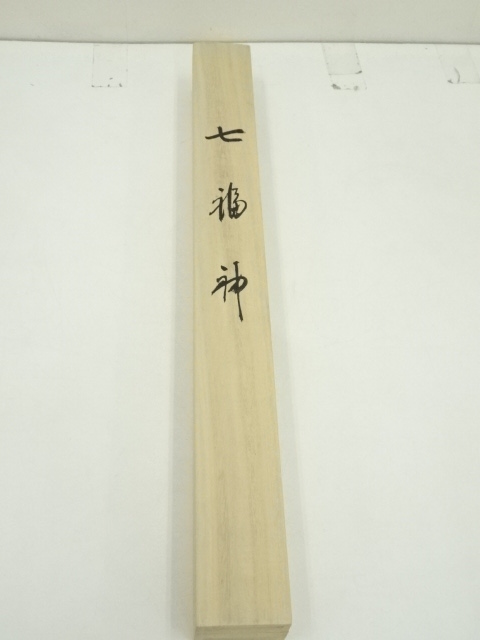 七福神